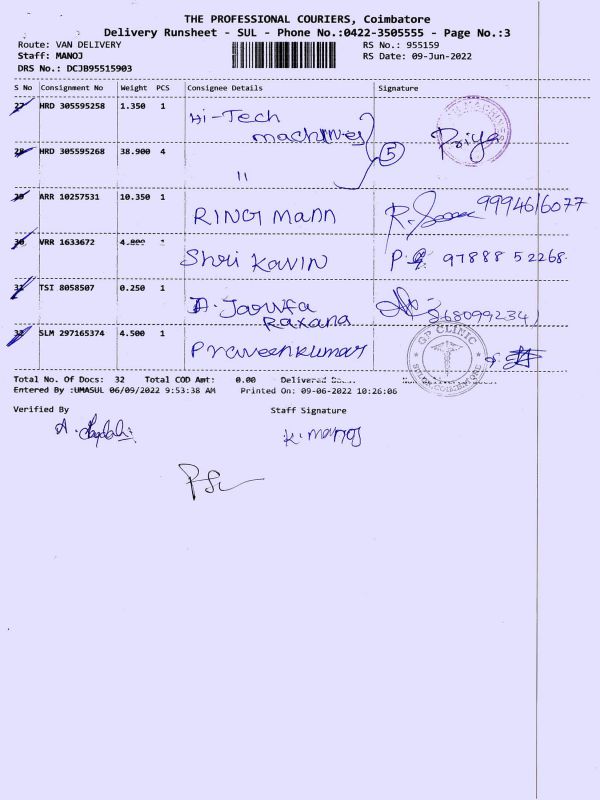 THE PROFESSIONAL COURIERS, Coimbatore
Delivery Runsheet - SUL - Phone No.:0422-3505555 - Page No.:3
Route: VAN DELIVERY
RS No.: 955159
Staff: MANOJ
RS Date: 09-Jun-2022
DRS No.: DCJB95515903
S No Consignment No Weight PCS Consignee Details Signature
27 HRD 305595258 1.350 1 Hi-Tech
machines Priya
28 HRD 305595268 38.900 4 5
"
29 ARR 10257531 10.350 1 RING Mann 9994616077
30 VRR 1633672 4.800 1 Shri Kavin P. 97888 52268.
31 TSI 8058507 0.250 1
Raxana
32 SLM 297165374 4.500 1 Praveenkumar GP CLINIC
Total No. Of Docs: 32 Total COD Amt: 0.00 Delivered
Entered By :UMASUL 06/09/2022 9:53:38 AM Printed On: 09-06-2022 10:26:06
Verified By Staff Signature
K. manoj